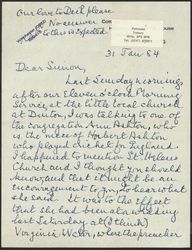 Our love to Dick please
No answer
to this is expected
31 Jan 84
Dear Simon,
Last Sunday morning,
after our Eleven o'clock Morning
Service at the little local church
at Denton, I was talking to one of
the congregation Ann Ashton, who
is the niece of Hubert Ashton
who played cricket for England
I happened to mention St. Helens
Church and I thought you should
know that it might be an
encouragement to you, to hear what
she said. It was to the effect
that she had been at a wedding
last Saturday, at (I think)
Virginia Water, when the preacher